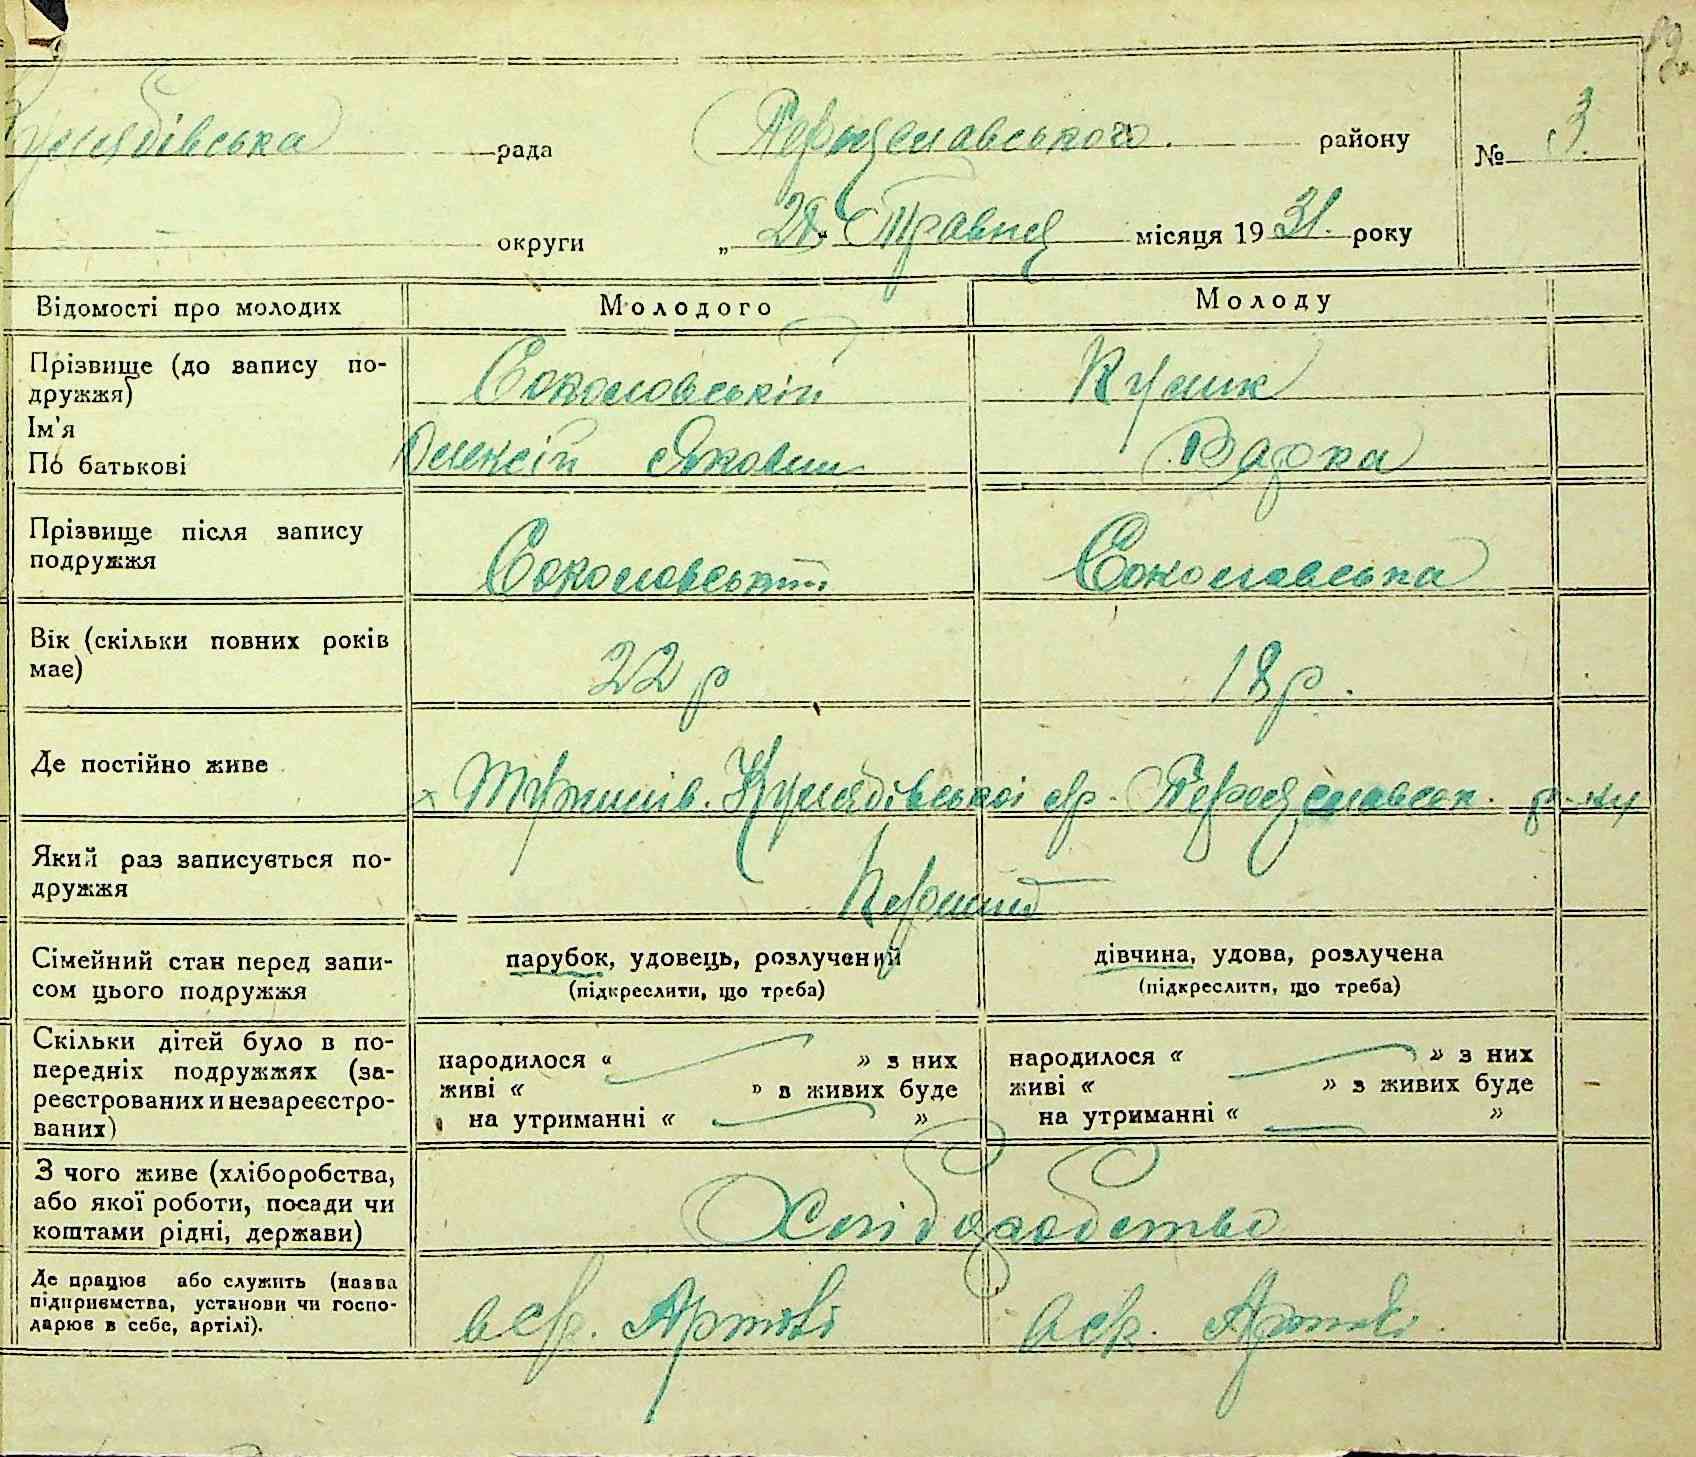 рада
Переяславського району
№ 3.
округи
„28“ Травня місяця 1931. року
Відомості про молодих
Молодого
Молоду
Прізвище (до запису по-
дружжя)
Соколовській
Кулик
Ім'я
По батькові
Олексій Якович
Варка
Прізвище після запису
подружжя
Соколовський
Соколовська
Вік (скільки повних років
має)
22 р
18 р.
Де постійно живе
ср. Переяславськ. р-ну
Який раз записується по-
дружжя
Перший
Сімейний стан перед запи-
сом цього подружжя
парубок, удовець, розлучений
(підкреслити, що треба)
дівчина, удова, розлучена
(підкреслити, що треба)
Скільки дітей було в по-
передніх подружжях (за-
реєстрованих и незареєстро-
ваних)
народилося « » з них
живі « » в живих буде
на утриманні « »
народилося « » з них
живі « » з живих буде
на утриманні « »
З чого живе (хліборобства,
або якої роботи, посади чи
коштами рідні, держави)
Хліборобство
Де працює або служить (назва
підприємства, установи чи госпо-
дарює в себе, артілі).
в ср. Артілі
в ср. Артілі.